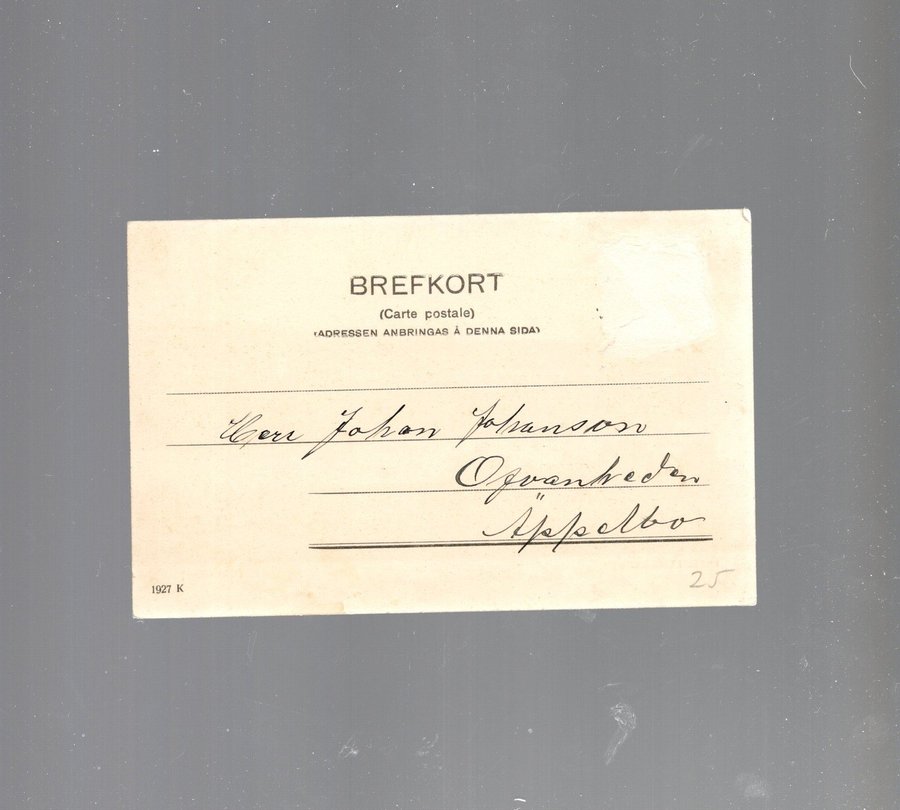 BREFKORT
(Carte postale)
(ADRESSEN ANBRINGAS Å DENNA SIDA)
Herr Johan Johanson
Ofvanheden
Äppelbo
1927 K
25